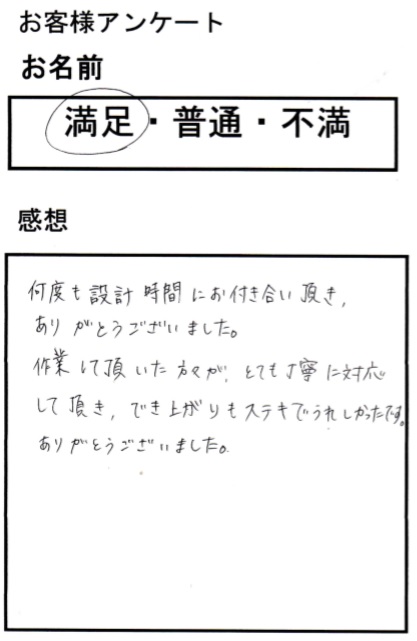 お客様アンケート
お名前
満足・普通・不満
感想
何度も設計時間にお付き合い頂き、
ありがとうございました。
作業して頂いた方々が、とても丁寧に対応
して頂き、でき上がりもステキでうれしかったです。
ありがとうございました。